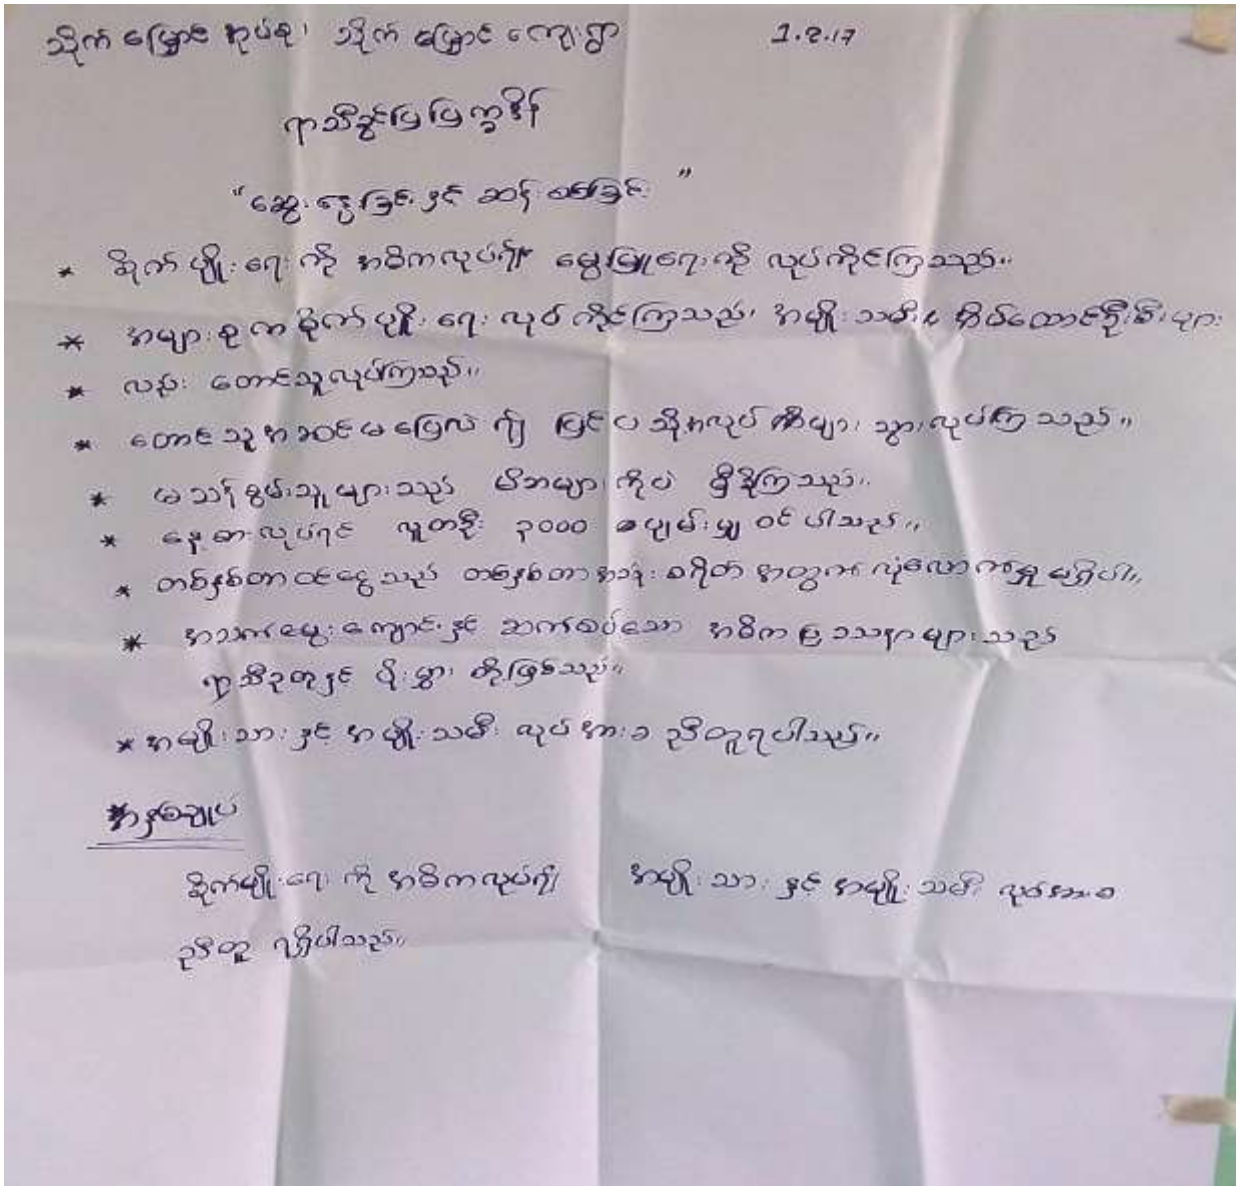 သိုက်မြောင်းအုပ်စု၊ သိုက်မြောင်းကျေးရွာ 1.2.17
ရာသီခွင်ပြပြက္ခဒိန်
"ဆွေးနွေးခြင်းနှင့် ဆန်းစစ်ခြင်း"
* စိုက်ပျိုးရေးကို အဓိကလုပ်၍ မွေးမြူရေးကို လုပ်ကိုင်ကြသည်။
* အများစုကစိုက်ပျိုးရေးလုပ်ကိုင်ကြသည်၊ အမျိုးသမီး အိမ်ထောင်ဦးစီးများ
* လည်း တောင်သူလုပ်ကြသည်။
* တောင်သူအဆင်မပြေလဲ၍ ပြင်ပသို့အလုပ် သွားလုပ်ကြသည်။
* မသန်စွမ်းသူများသည် မိဘများကိုပဲ မှီခိုကြသည်။
* နေ့စားလုပ်ရင် လူတဦး ၃၀၀၀ ပျမ်းမျှ ဝင်ပါသည်။
* တစ်နှစ်တာဝင်ငွေသည် တစ်နှစ်တာစားသုံးစရိတ်အတွက် လုံလောက်မှုမရှိပါ။
* အသက်မွေးကျောင်းနှင့် ဆက်စပ်သော အဓိကပြဿနာများသည်
ရာသီဥတုနှင့် ပိုးမွှား တို့ဖြစ်သည်။
* အမျိုးသားနှင့် အမျိုးသမီး လုပ်အားခ ညီတူရပါသည်။
အနှစ်ချုပ်
စိုက်ပျိုးရေးကို အဓိကလုပ်၍ အမျိုးသားနှင့်အမျိုးသမီး လုပ်အားခ
ညီတူ ရရှိပါသည်။